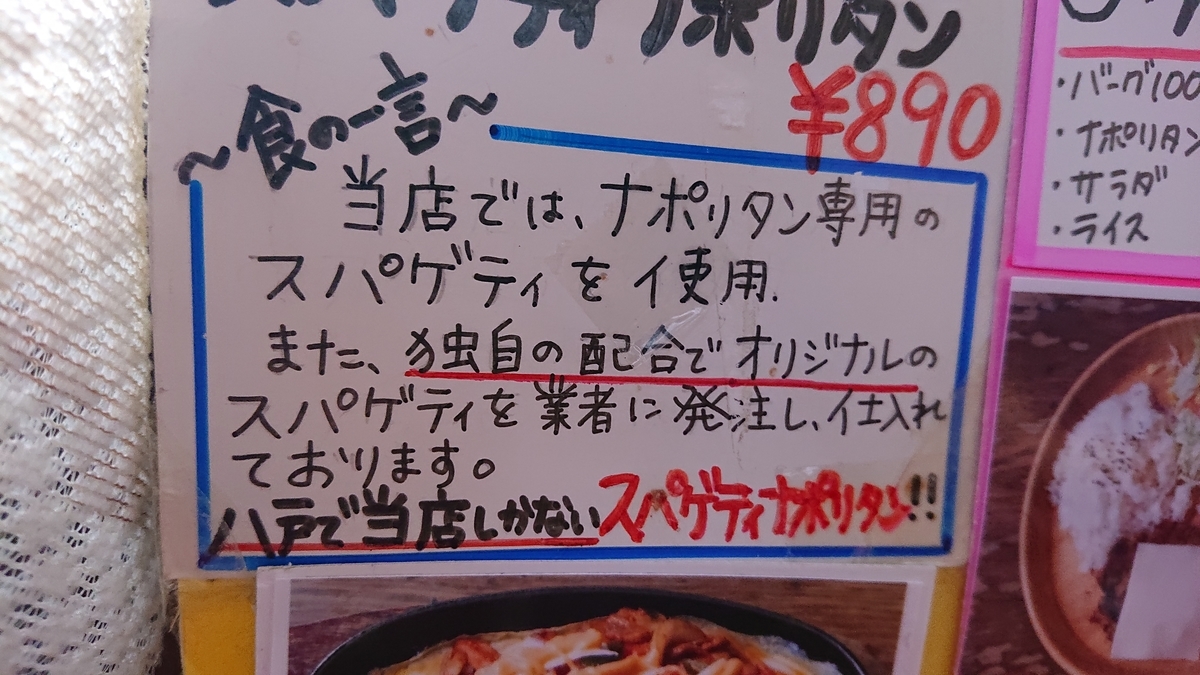 スパゲティナポリタン
¥890
～食の一言～
当店では、ナポリタン専用の
スパゲティを使用.
また、独自の配合でオリジナルの
スパゲティを業者に発注し、仕入れ
ております。
八戸で当店しかないスパゲティナポリタン!!
・バーグ100
・ナポリタン
・サラダ
・ライス